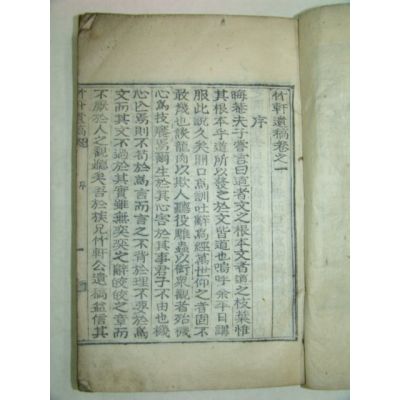 竹軒遺稿卷之一
序
晦菴夫子嘗言曰道者文之根本文者道之枝葉惟
其根本乎道所以發之於文皆道也嗚呼余平日講
服此說久矣開口爲訓吐辭爲經萬世仰之者固不
敢幾也談龍肉以欺人聽役雕蟲以衒衆觀者殆機
心爲技癢焉爾生於其心害於其事君子不由也機
心亡焉則不苟於爲言而言之不背於理不要於爲
文而其文不過於其實雖無奕奕之辭皎皎之章而
不厭於人之觀聽矣吾於族兄竹軒公遺稿益信其
竹軒遺稿 序 一